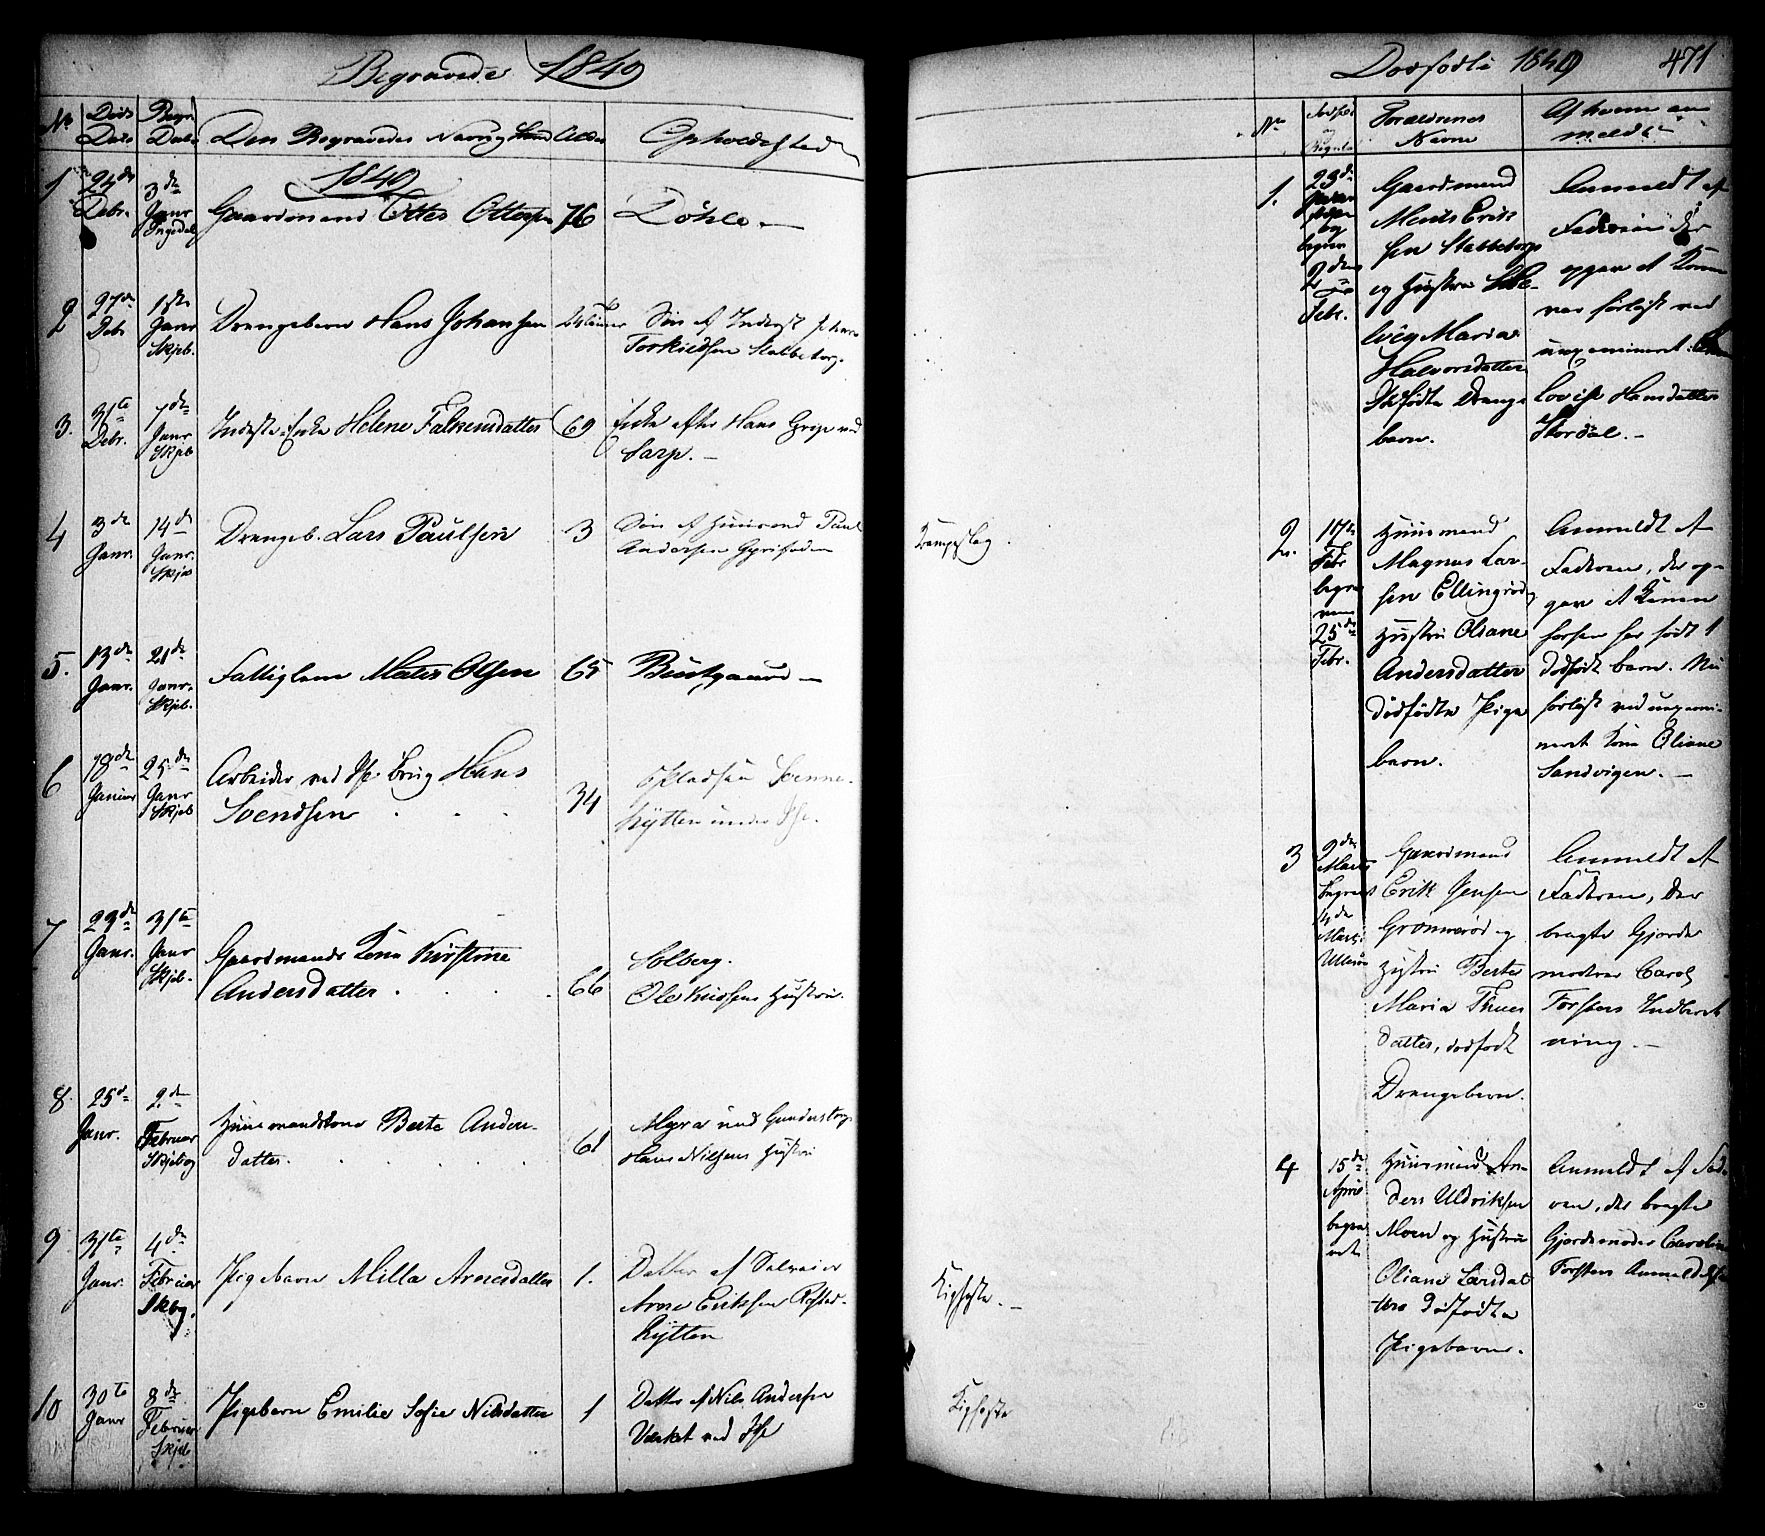 Begravede 1849
No Døds Dato Begr. Dato Den Begravedes Navn og Stand Alder Opholdssted
1849
1 24de Debr. 3de Janr Ingedal Gaardmand Otter Ottersen 76 Döhle. —
2 27de Debr 1ste Janr Skjeb. Drengebarn Hans Johansen Søn af Inderst Johan
Torkildsen Stabbetorp.
3. 31te Debr. 7de Janr Skjeb Inderste-Enke Helene Falkersdatter 69 Enke efter Hans Grip ved
Sarp. —
4 3de Janr. 14de Janr. Skjeb Drengeb. Lars Paulsen 3 Søn af Huusmand Paul
Andersen
5. 13de Janr. 21de Janr. Skjeb. Fattiglem Mates Olsen 65 Bustgaard —
6 18de Januar 25de Janr Skjeb Arbeider ved Ise brug Hans
Svendsen . . . 34 Pladsen Svenne-
hytten under Ise.
7 23de Janr. 31te Janr Skjeb. Gaardmands Kone Kirstine
Andersdatter . . . . 66 Solberg.
Ole Knudsens Hustru.
8 25de Janr. 2den Februar Skjeberg Huusmandskone Berte Anders-
datter. . . . . . 61 Myra und Gunderstorp
Hans Nilsens Hustru
9 31te Janr. 4de Februar Skbg. Pigebarn Milla Arnesdatter 1. Datter af Selveier
Arne Eriksen
hytten
10 30te Janr 8de Februar Skjeb Pigebarn Emilie Sofie Nilsdatter 1 Datter af Nils Andersen
Værket ved Ise
Krampslag
Kighoste. —
Kighoste
Dødfødte 1849 471
No Dødfødt og Begravet Forældrenes Navne Af hvem anmeldt
1. 23de begravet 2den Febr.
Gaardmand
Mouds Erik-
sen Stabbetorp
og Hustru
Maria
Halvorsdatter
Dødfødte Drenge
barn.
Anmeldt af
Faderen der
opgav at Konen
var forløst ved
uexamineret
Lovise Hansdatter
Stordal. —
2. 17de Febr begraven 25de Febr.
Huusmand
Magnus Lar-
sen Ellingrød
Hustru Oliane
Andersdatter
dødfødte Pige
barn.
Anmeldt af
Faderen, der op-
gav at Konen
forsen har født 1
dødfødt barn.
forløst ved uexami-
neret Kone Oliane
Sandvigen. —
3 9de Marts begravet Marts Ullerøe
Gaardmand
Erik Jensen
Grønnerød og
Hustru Berte
Maria Thues
datter, dødfødt
Drengebarn.
Anmeldt af
Faderen, der
bragte Gjorde
moder Carol
Forstens Indberet
ning. —
4 15de April begravet
Huusmand An-
ders Uldriksen
Moen og Hustru
Oliane Larsdat
ters dødfødte
Pigebarn.
Anmeldt af Fad-
eren, der bragte
Gjordemoder Caroline
Forstens Anmeldelse